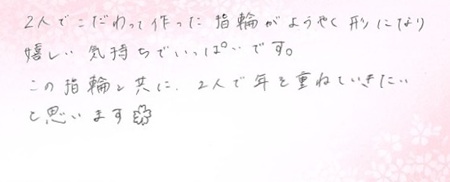 2人でこだわって作った指輪がようやく形になり
嬉しい気持ちでいっぱいです。
この指輪と共に、2人で年を重ねていきたい
と思います🌸